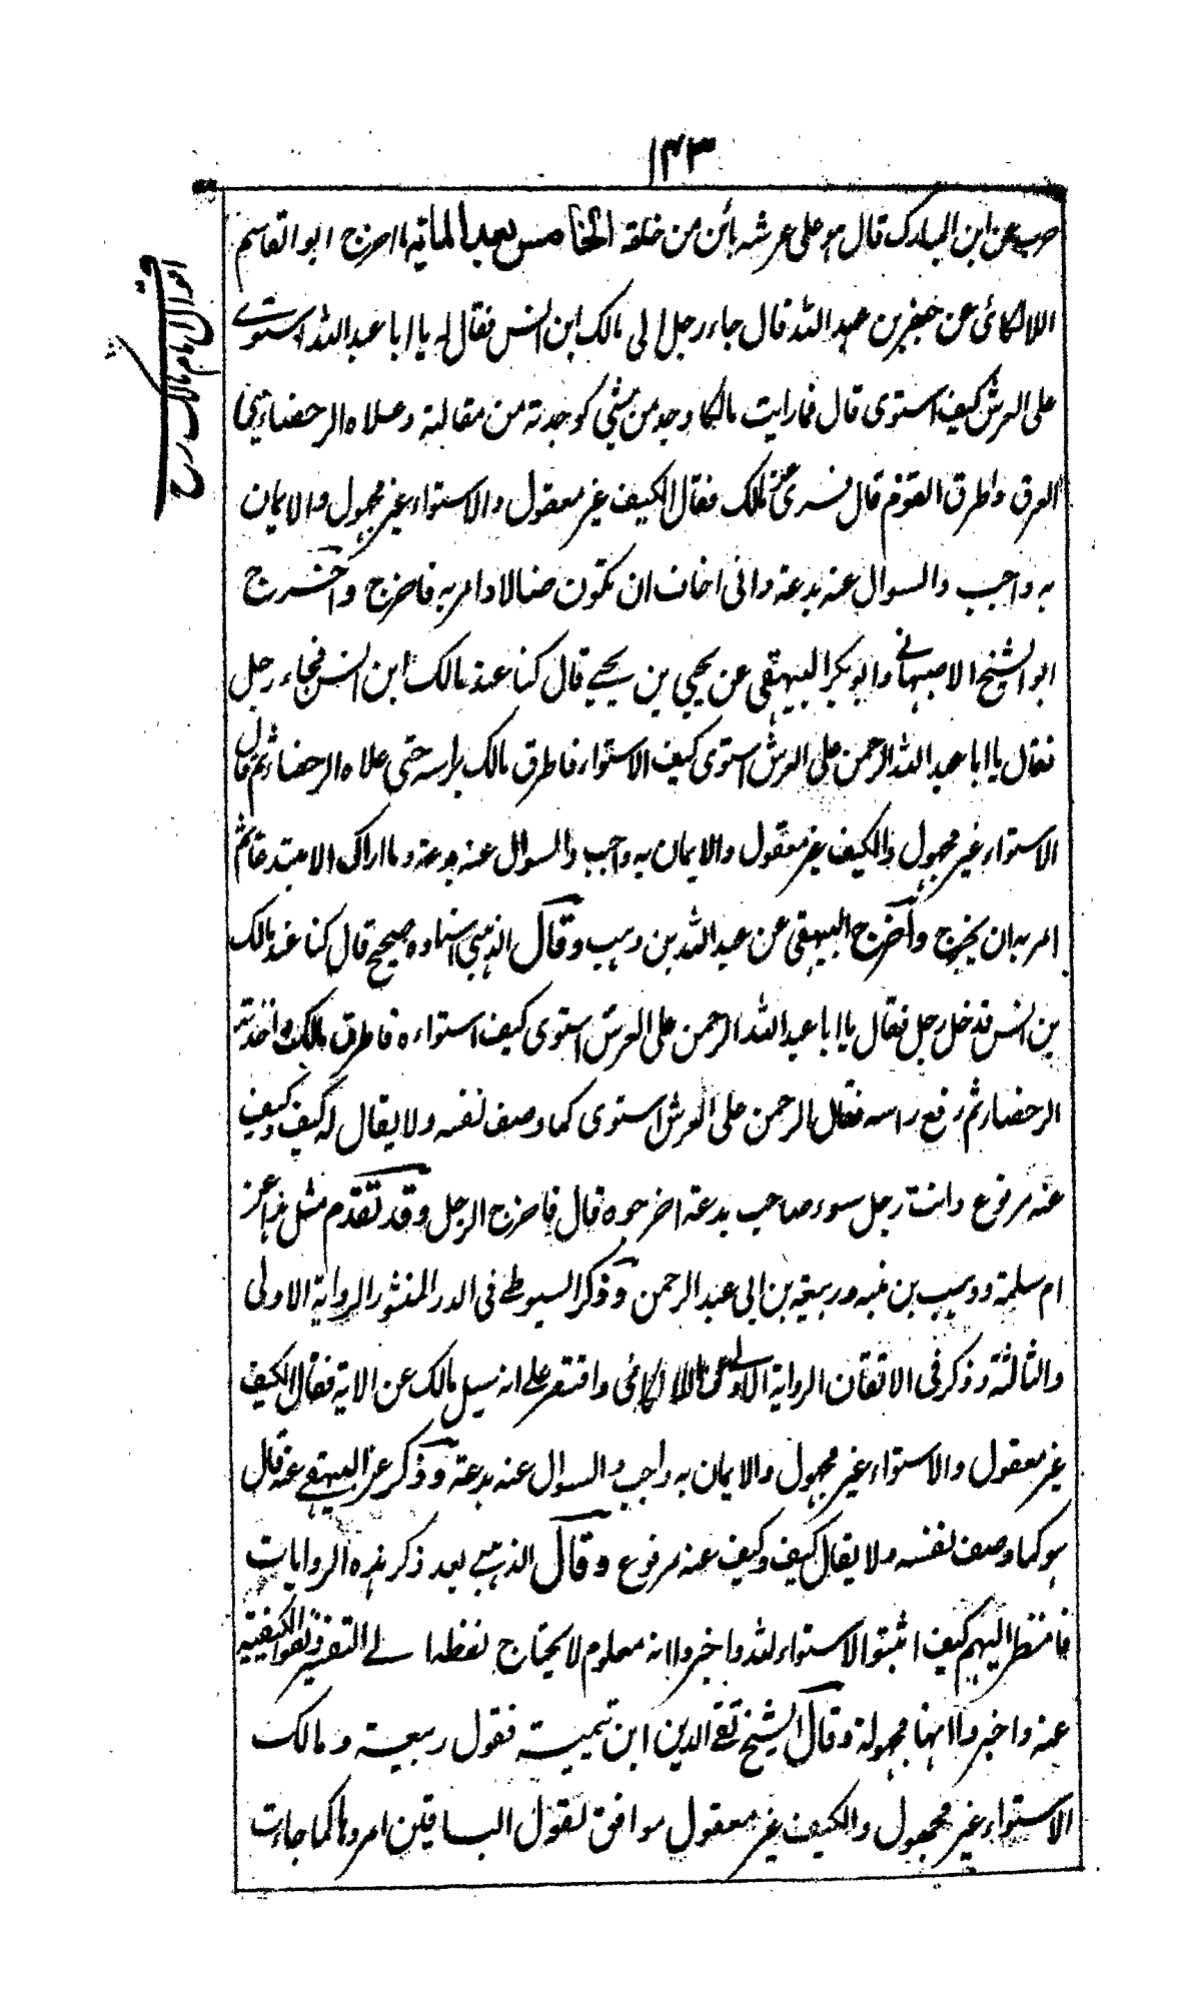 ١٤٣
حرب عن ابن المبارك قال هو على عرشه بائن من خلقه الخامس بعد المائة ما اخرج ابو القاسم
اللالكائى عن جعفر بن عبد الله قال جاء رجل الى مالك ابن انس فقال له يا ابا عبد الله استوى
على العرش كيف استوى قال فما رايت مالكا وجد من شئ كوجدته من مقالته وعلاه الرحضاء يعنى
العرق واطرق القوم قال فسرى عن مالك فقال الكيف غير معقول والاستواء غير مجهول والايمان
به واجب والسوال عنه بدعة وانى اخاف ان تكون ضالا وامر به فاخرج واخرج
ابو الشيخ الاصبهانى وابو بكر البيهقى عن يحيى بن يحيى قال كنا عند مالك ابن انس فجاء رجل
فقال يا ابا عبد الله الرحمن على العرش استوى كيف الاستواء فاطرق مالك براسه حتى علاه الرحضاء ثم قال
الاستواء غير مجهول والكيف غير معقول والايمان به واجب والسوال عنه بدعة وما اراك الا مبتدعا ثم
امر به ان يخرج واخرج البيهقى عن عبد الله بن وهب وقال الذهبى اسناده صحيح قال كنا عند مالك
بن انس فدخل رجل فقال يا ابا عبد الله الرحمن على العرش استوى كيف استواءه فاطرق مالك واخذته
الرحضاء ثم رفع راسه فقال الرحمن على العرش استوى كما وصف نفسه ولا يقال له كيف وكيف
عنه مرفوع وانت رجل سوء صاحب بدعة اخرجوه قال فاخرج الرجل وقد تقدم مثل هذا عن
ام سلمة ووهب بن منبه وربيعة بن ابى عبد الرحمن وذكر السيوطى فى الدر المنثور الرواية الاولى
والثالثة وذكر فى الاتقان الرواية الاولى عن اللالكائى واقتصر على انه سيل مالك عن الاية فقال الكيف
غير معقول والاستواء غير مجهول والايمان به واجب والسوال عنه بدعة وذكر عن البيهقى عنه قال
هو كما وصف نفسه ولا يقال كيف وكيف عنه مرفوع وقال الذهبى بعد ذكر هذه الروايات
فانظر اليهم كيف اثبتوا الاستواء لله واخبروا انه معلوم لا يحتاج لفظه الى التفسير ونفوا الكيفية
عنه واخبروا انها مجهولة وقال الشيخ تقى الدين ابن تيمية فقول ربيعة ومالك
الاستواء غير مجهول والكيف غير معقول موافق لقول الباقين امروها كما جاءت
اقوال الامام مالك رح